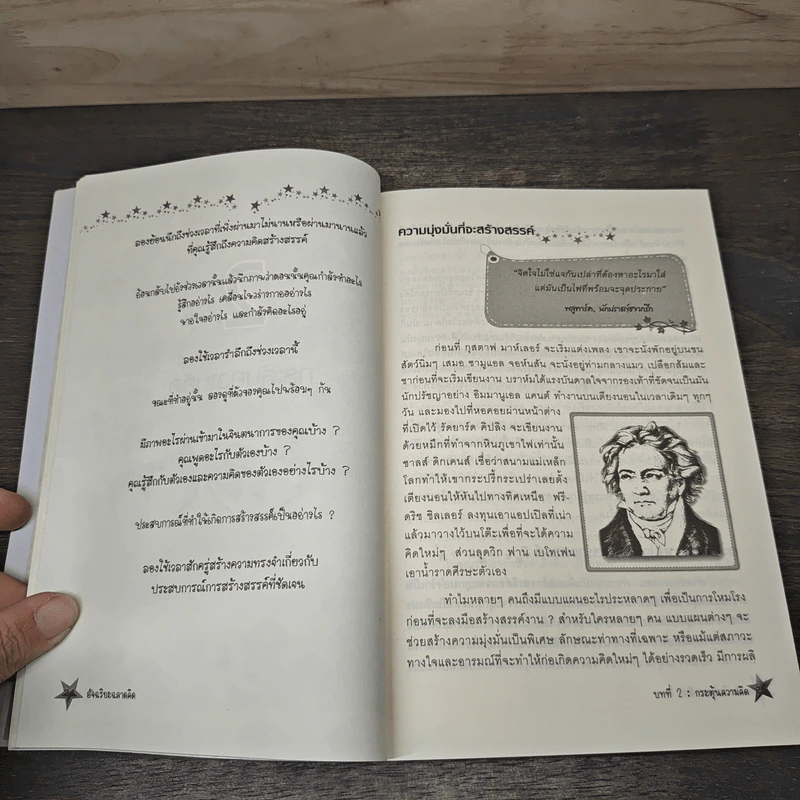 ลองย้อนนึกถึงช่วงเวลาที่เพิ่งผ่านมาไม่นานหรือผ่านมานานแล้ว
ที่คุณรู้สึกถึงความคิดสร้างสรรค์
ย้อนกลับไปยังช่วงเวลานั้นแล้วนึกภาพว่าตอนนั้นคุณกำลังทำอะไร
รู้สึกอย่างไร เคลื่อนไหวร่างกายอย่างไร
หายใจอย่างไร และกำลังคิดอะไรอยู่
ลองใช้เวลารำลึกถึงช่วงเวลานี้
ขณะที่ทำอยู่นั้น ลองดูที่ตัวของคุณไปพร้อมๆ กัน
มีภาพอะไรผ่านเข้ามาในจินตนาการของคุณบ้าง ?
คุณพูดอะไรกับตัวเองบ้าง ?
คุณรู้สึกกับตัวเองและความคิดของตัวเองอย่างไรบ้าง ?
ประสบการณ์ที่ทำให้เกิดการสร้างสรรค์เป็นอย่างไร ?
ลองใช้เวลาสักครู่สร้างความทรงจำเกี่ยวกับ
ประสบการณ์การสร้างสรรค์ที่ชัดเจน
อัจฉริยะฉลาดคิด
ความมุ่งมั่นที่จะสร้างสรรค์
"จิตใจไม่ใช่แจกันเปล่าที่ต้องหาอะไรมาใส่
แต่มันเป็นไฟที่พร้อมจะจุดประกาย"
พลูทาร์ค, นักปราชญ์ชาวกรีก
ก่อนที่ กุสตาฟ มาห์เลอร์ จะเริ่มแต่งเพลง เขาจะนั่งพักอยู่บนขน
สัตว์นิ่มๆ เสมอ ซามูแอล จอห์นสัน จะนั่งอยู่ท่ามกลางแมว เปลือกส้มและ
ชาก่อนที่จะเริ่มเขียนงาน บราห์มได้แรงบันดาลใจจากรองเท้าที่ขัดจนเป็นมัน
นักปรัชญาอย่าง อิมมานูเอล แคนต์ ทำงานบนเตียงนอนในเวลาเดิมๆ ทุกๆ
วัน และมองไปที่หอคอยผ่านหน้าต่าง
ที่เปิดไว้ รัดยาร์ด คิปลิง จะเขียนงาน
ด้วยหมึกที่ทำจากหินภูเขาไฟเท่านั้น
ชาลส์ ดิกเคนส์ เชื่อว่าสนามแม่เหล็ก
โลกทำให้เขากระปรี้กระเปร่าเลยตั้ง
เตียงนอนให้หันไปทางทิศเหนือ ฟรี-
ดริช ชิลเลอร์ ลงทุนเอาแอปเปิลที่เน่า
แล้วมาวางไว้บนโต๊ะเพื่อที่จะได้ความ
คิดใหม่ๆ ส่วนลุดวิก ฟาน เบโทเฟน
เอาน้ำราดศีรษะตัวเอง
ทำไมหลายๆ คนถึงมีแบบแผนอะไรประหลาดๆ เพื่อเป็นการโหมโรง
ก่อนที่จะลงมือสร้างสรรค์งาน ? สำหรับใครหลายๆ คน แบบแผนต่างๆ จะ
ช่วยสร้างความมุ่งมั่นเป็นพิเศษ ลักษณะท่าทางที่เฉพาะ หรือแม้แต่สภาวะ
ทางใจและอารมณ์ที่จะทำให้ก่อเกิดความคิดใหม่ๆ ได้อย่างรวดเร็ว มีการผลิ
บทที่ 2 : กระตุ้นความคิด